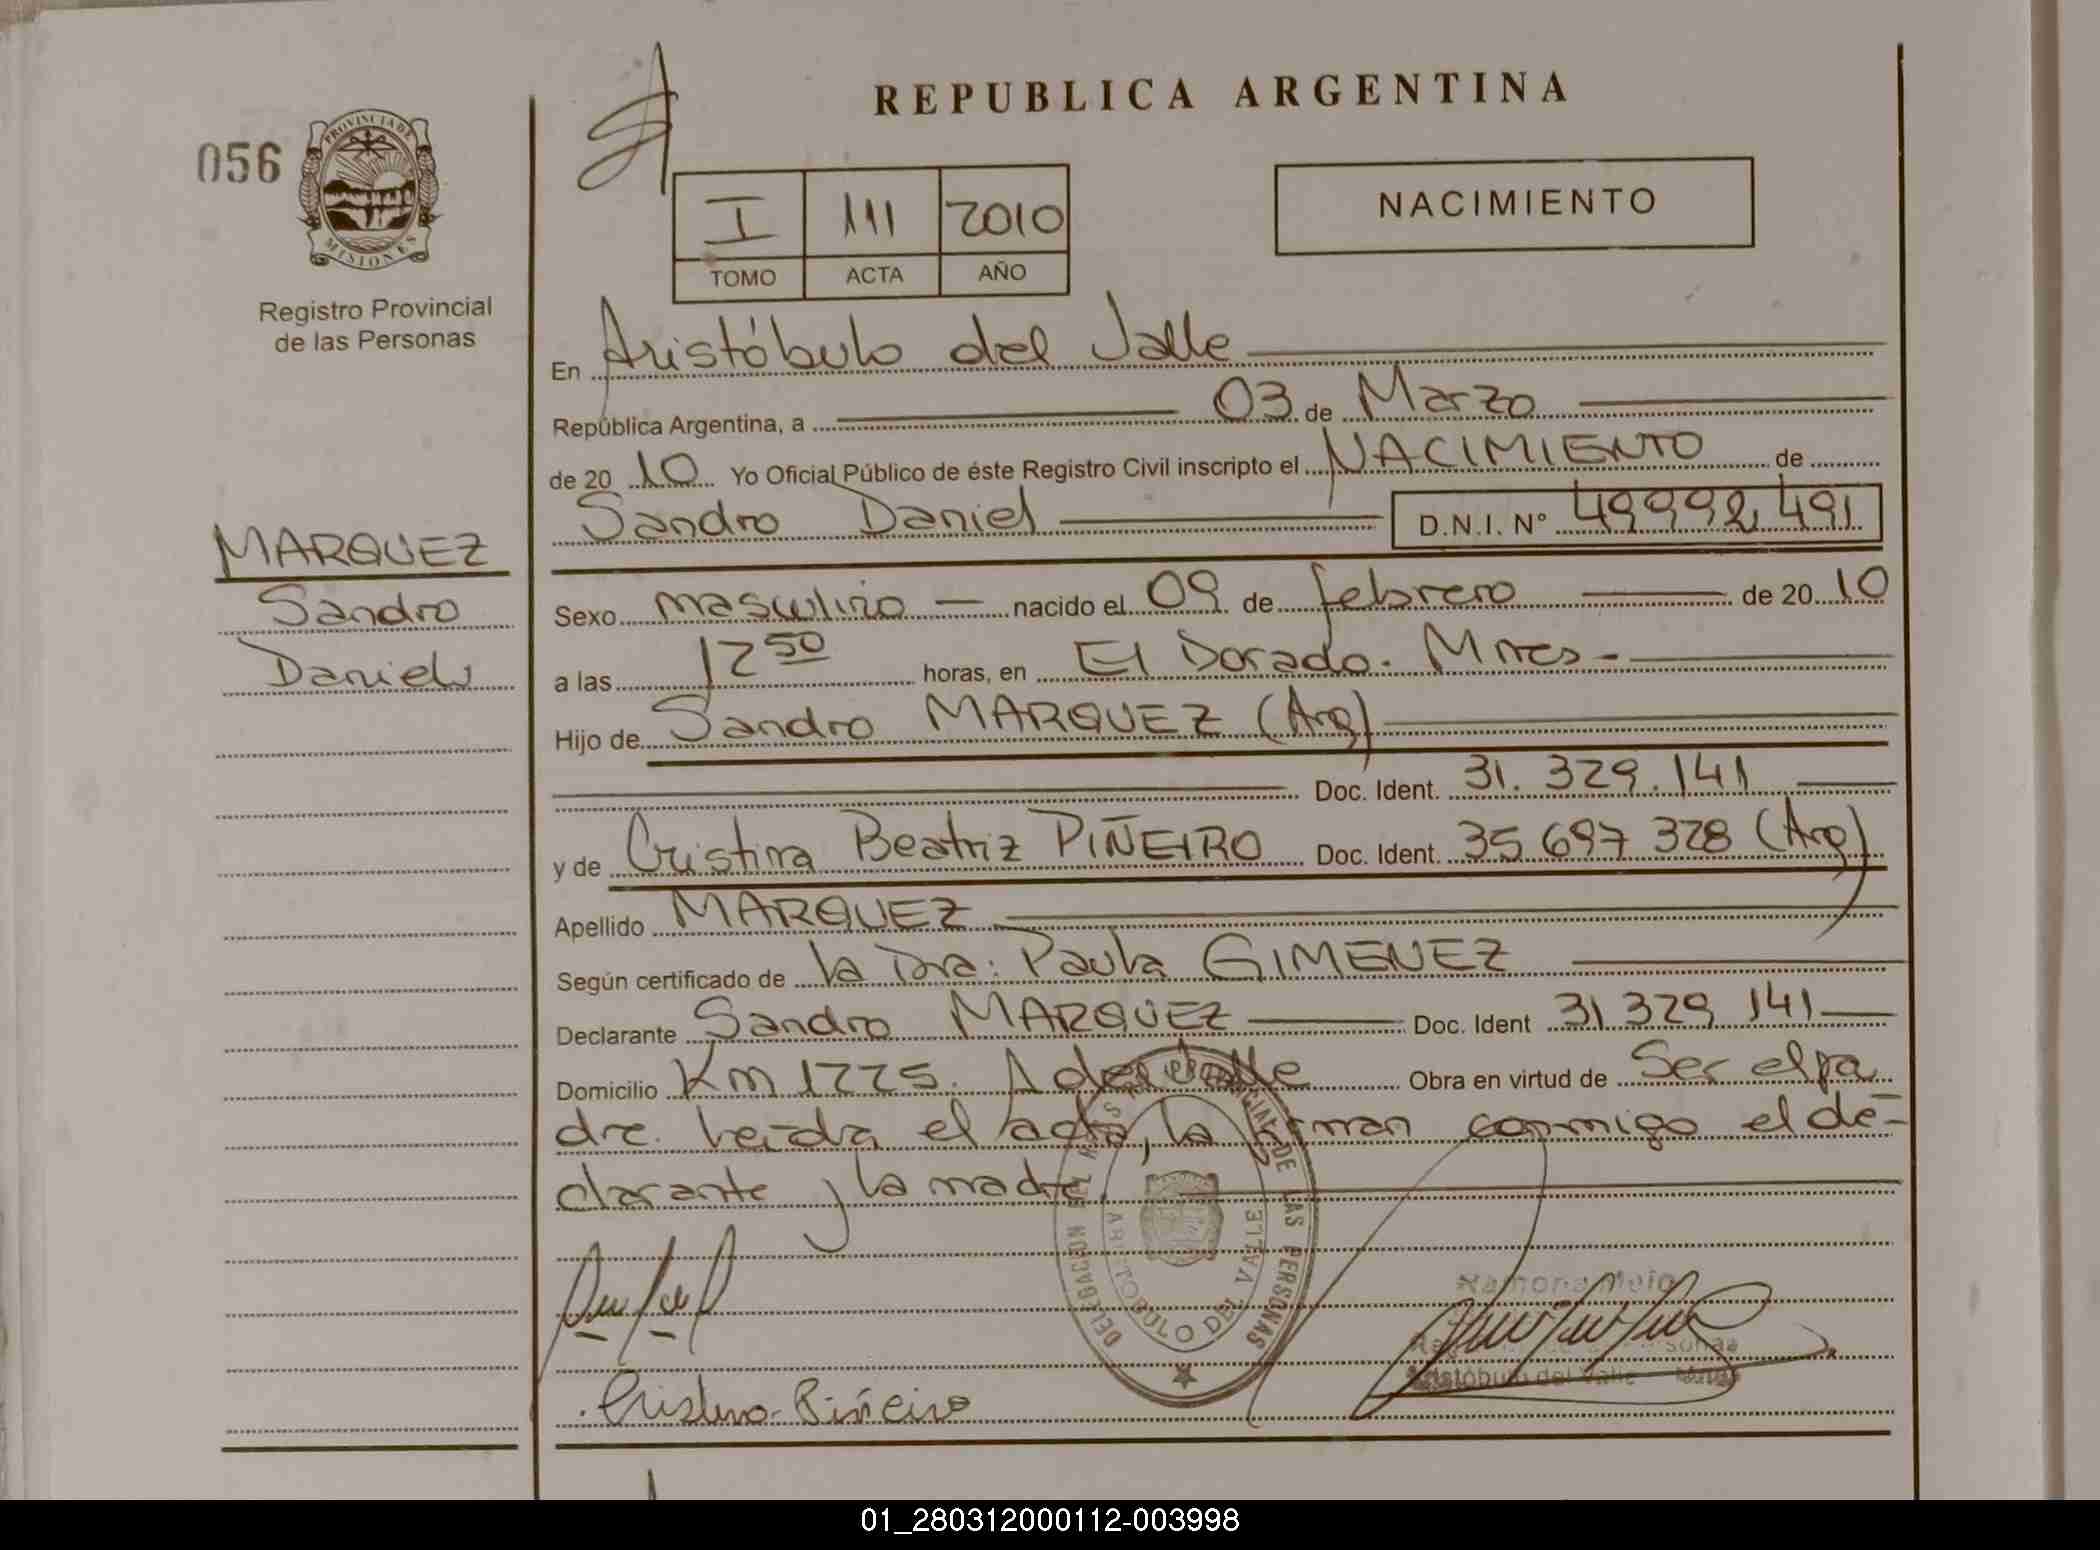 REPUBLICA ARGENTINA
056
PROVINCIA DE
MISIONES
Registro Provincial
de las Personas
I 111 2010
TOMO ACTA AÑO
NACIMIENTO
En Aristóbulo del Valle
República Argentina, a 03 de Marzo
de 20 10 Yo Oficial Público de éste Registro Civil inscripto el NACIMIENTO de
Sandro Daniel D.N.I. Nº 49992491
MARQUEZ
Sandro
Daniel
Sexo masculino nacido el 09 de febrero de 20 10
a las 12 50 horas, en El Dorado. Mnes-
Hijo de Sandro MARQUEZ (Arg)
Doc. Ident. 31.329.141
y de Cristina Beatriz PIÑEIRO Doc. Ident. 35 697 328 (Arg)
Apellido MARQUEZ
Según certificado de la Dra: Paula GIMENEZ
Declarante Sandro MARQUEZ Doc. Ident 31 329 141
Domicilio Km 1225. A del Valle Obra en virtud de Ser el pa
dre. Leída el acta, la firman conmigo el de-
clarante y la madre.
DELEGACION DEL REGISTRO PROVINCIAL DE LAS PERSONAS
ARISTOBULO DEL VALLE
Ramona
Aristóbulo del Valle
Cristina Piñeiro
01_280312000112-003998